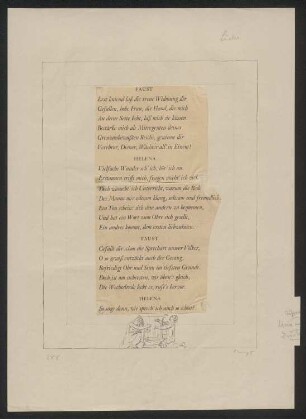 FAUST
Erst knieend laß die treue Widmung dir
Gefallen, hohe Frau; die Hand, die mich
An deine Seite hebt, laß mich sie küssen.
Bestärke mich als Mitregenten deines
Grenzunbewußten Reichs, gewinne dir
Verehrer, Diener, Wächter all in Einem!
HELENA
Vielfache Wunder seh ich, hör ich an.
Erstaunen trifft mich, fragen möcht ich viel.
Doch wünscht ich Unterricht, warum die Rede
Des Manns mir seltsam klang, seltsam und freundlich.
Ein Ton scheint sich dem andern zu bequemen,
Und hat ein Wort zum Ohre sich gesellt,
Ein andres kommt, dem ersten liebzukosen.
FAUST
Gefällt dir schon die Sprechart unsrer Völker,
O so gewiß entzückt auch der Gesang,
Befriedigt Ohr und Sinn im tiefsten Grunde.
Doch ist am sichersten, wir übens gleich;
Die Wechselrede lockt es, ruft's hervor.
HELENA
So sage denn, wie sprech ich auch so schön?